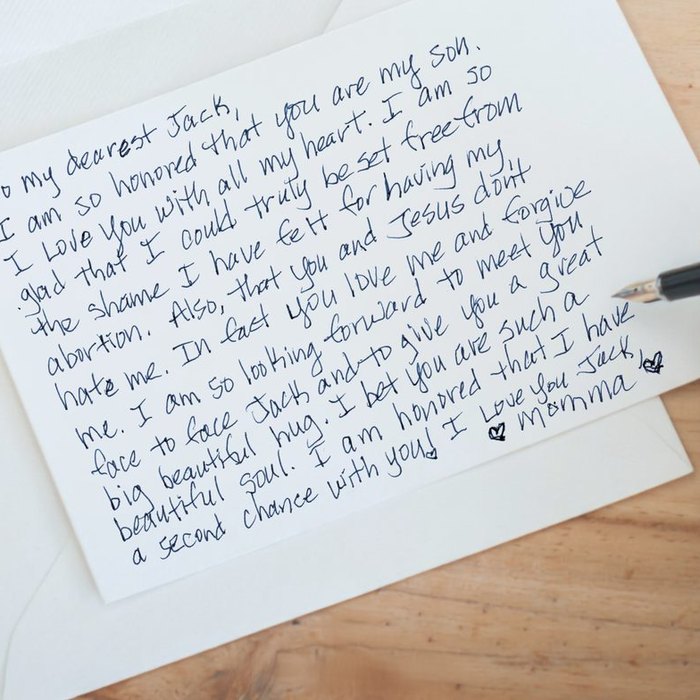 o my dearest Jack,
I am so honored that you are my son.
I Love You with all my heart. I am so
glad that I could truly be set free from
the shame I have felt for having my
abortion. Also, that you and Jesus don't
hate me. In fact you love me and forgive
me. I am so looking forward to meet you
face to face Jack and to give you a great
big beautiful hug. I bet you are such a
beautiful soul. I am honored that I have
a second chance with you! I Love You Jack!
momma